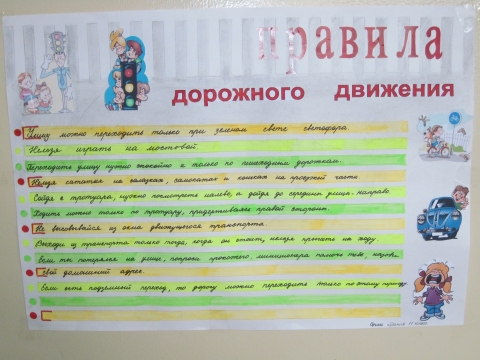 правила
дорожного движения
Улицу можно переходить только при зеленом свете светофора
Нельзя играть на мостовой.
Переходите улицу нужно спокойно и только по пешеходным дорожкам.
Нельзя кататься на салазках, самокатах и коньках на проезжей части.
Сойдя с тротуара, нужно посмотреть налево, а дойдя до середины улицы - направо
Ходить можно только по тротуару, придерживаясь правой стороны.
Не высовывайся из окна движущегося транспорта.
Выходи из транспорта только тогда, когда он стоит, нельзя прыгать на ходу
Если ты потерялся на улице, попроси прохожего, милиционера помочь тебе, назови
свой домашний адрес.
Если есть подземный переход, то дорогу можно переходить только по этому переходу